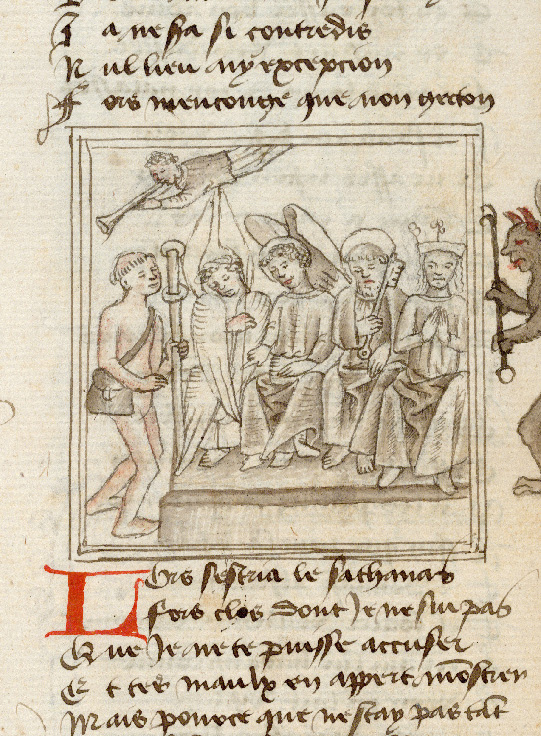 I a ne sra si contredis
N ul lieu ny excepcion
F ors menconge que non gecton
Lors sestria le sathanas
fors clos dont Je ne suy pas
Que Je ne te puisse accuser
E t tes maulx en appert mostrer
M ais pource que nestay pas tat